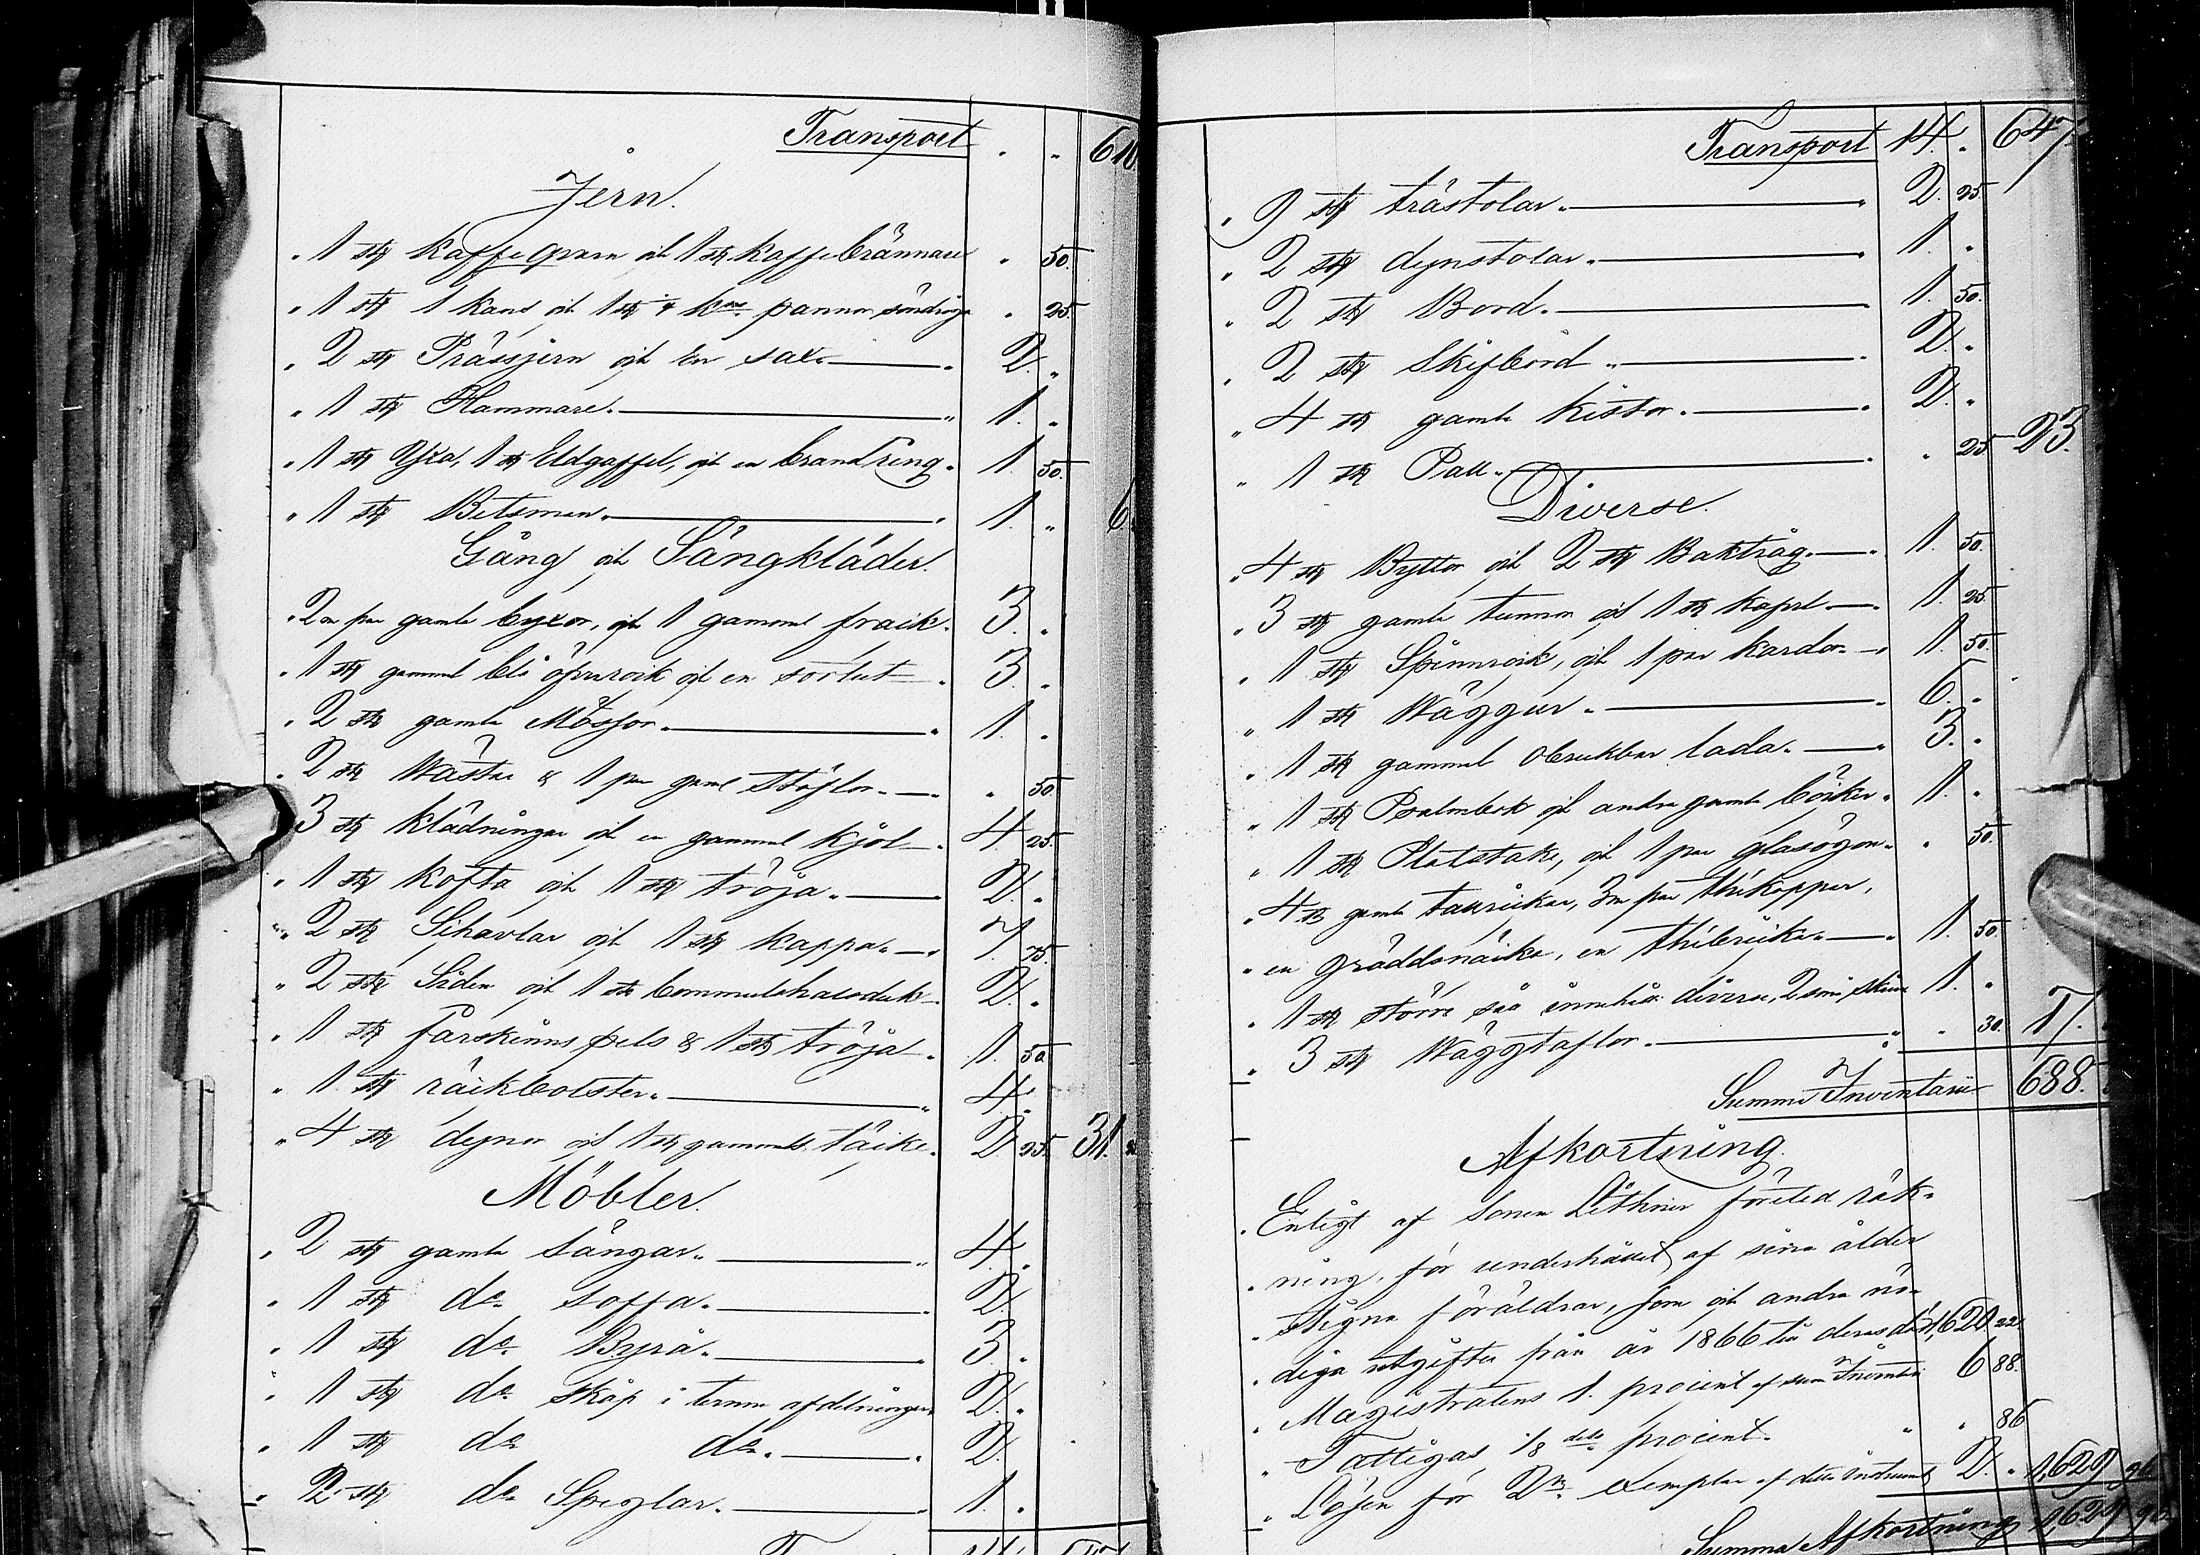 Transport " " 610
Jern.
" 1 st kaffeqvarn och 1 st kaffebrännare " 50.
" 1 st 1 kans och 1 st 4 k:ns pannor söndriga " 25.
" 2 st Prässjern och en sax. 2. "
" 1 st Hammare. 1. "
" 1 st Yxa, 1 st Eldgaffel, och en brandring. 1. 50.
" 1 st Betsman. 1. " 6.
Gång och Sängkläder.
" 2 par gamla byxor, och 1 gammal frack. 3. "
" 1 st gammal blå öfverrock och en sortut 3. "
" 2 st gamla Mössor. 1. "
" 2 st Västar & 1 par gaml stöflor. " 50
" 3 st klädningar och en gammal kjol 4 25.
" 1 st kofta och 1 st tröja. 2. "
" 2 st Schavlar och 1 st kappa. 7. 75.
" 2 st Siden och 1 st bommulshalsduk 2. "
" 1 st Fårskinns pels & 1 st tröja 1. 50
" 1. st räckbolster. 4. "
" 4 st dynor och 1 st gammalt täcke. 2 25. 31.
Möbler.
" 2 st gamla sängar. 4. "
" 1 st do soffa. 2.
" 1 st do Byrå. 3. "
" 1 st do skåp i tvenne afdelningar 2. "
" 1 st do do. 2.
" 2 st do Speglar. 1. "
Transport 14. " 647.
" 9 st trästolar. 2. 25.
" 2 st dynstolar. 1. "
" 2 st Bord. 1. 50.
" 2 st Skifbord 2. "
" 4 st gamla kistor. 2. "
" 1 st Pall. " 25 23.
Diverse.
" 4 st Byttor och 2 st Baktråg. 1. 50.
" 3 st gamla tunnor och 1 st kappe 1. 25
" 1 st Spinnrock, och 1 par kardor. 1. 50.
" 1 st Väggur. 6. "
" 1 st gammal obrukbar lada. 3. "
" 1 st Psalmbok och andra gamla böcker. 1. "
" 1 st Platstake, och 1 par glasögon. " 50.
" 4 st gamla tallrickar, 3 par thékoppar,
" en gräddsnäcka, en thébricka. 1. 50.
" 1 st större så innehåll: diverse, 2 små 1. "
" 3 st Väggtaflor. " 30. 17.
Summa Inventarier 688.
Afkortning.
" Enligt af sonen Lithner företed räk-
" ning, för underhållet af sina ålder
" stigna föräldrar, som och andra nö-
" diga utgifter från år 1866 till deras död 1,620. 22.
" Magistratens 1. procent af sum Inventar 6 88.
" Fattigas 1/8 dels procent. " 86
" Lösen för 2ne exemplar af detta instrument 2. " 1,629 96
Summa Afkortning 1,629 96